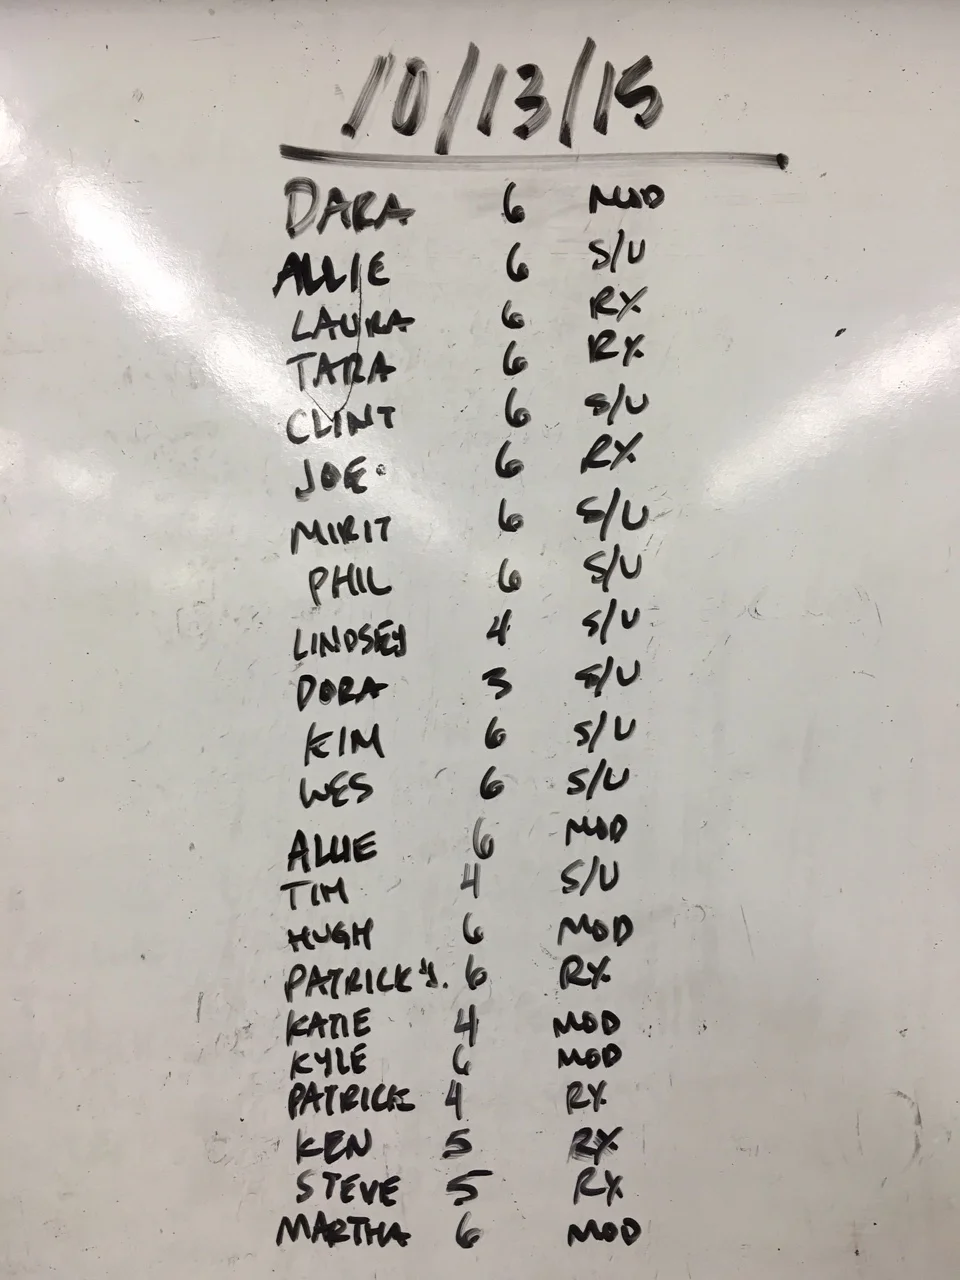 10/13/15
DARA 6 MOD
ALLIE 6 S/U
LAURA 6 RX
TARA 6 RX
CLINT 6 S/U
JOE 6 RX
MIRIT 6 S/U
PHIL 6 S/U
LINDSEY 4 S/U
DORA 3 S/U
KIM 6 S/U
WES 6 S/U
ALLIE 6 MOD
TIM 4 S/U
HUGH 6 MOD
PATRICK 6 RX
KATIE 4 MOD
KYLE 6 MOD
PATRICK 4 RX
KEN 5 RX
STEVE 5 RX
MARTHA 6 MOD